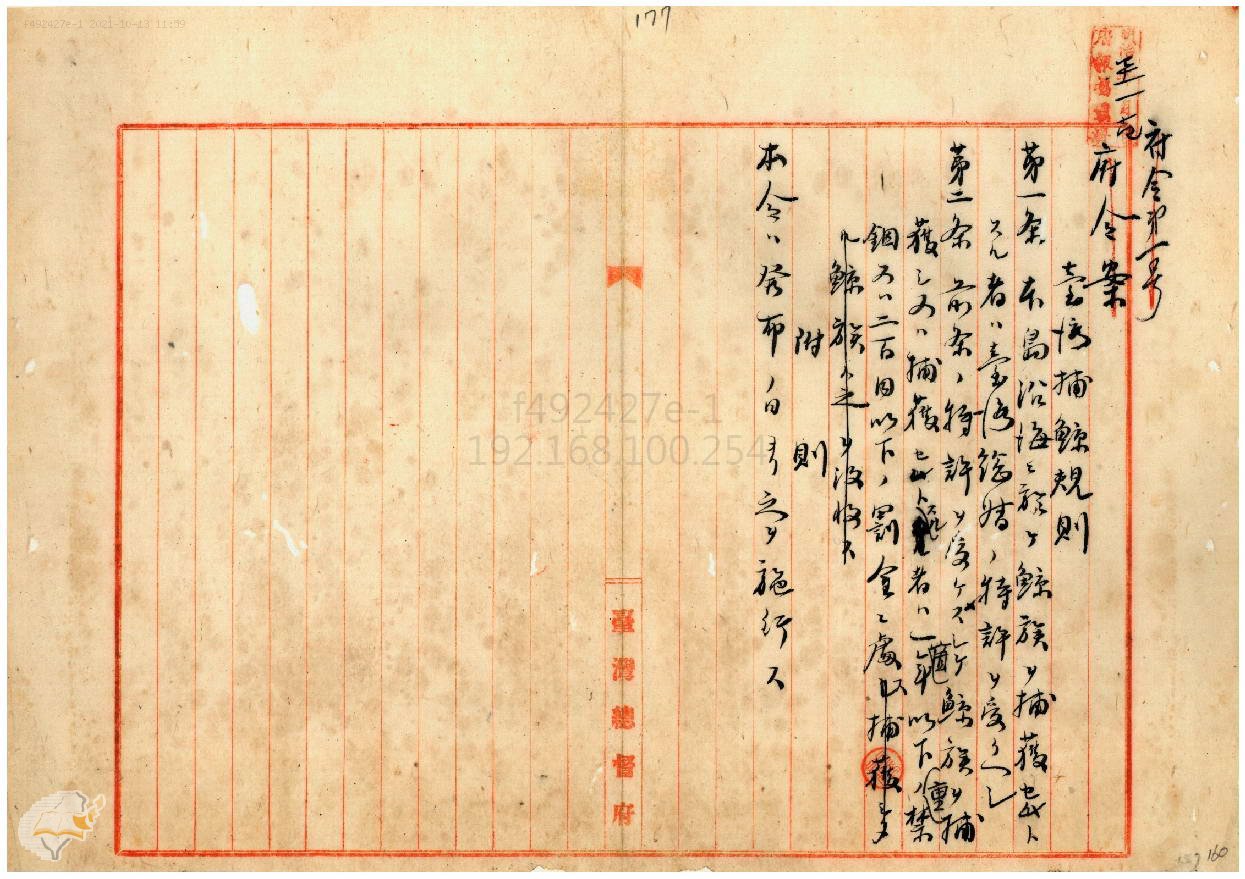 f492427e-1 2021-10-13 11:59
177
府令第一号
府令案
臺湾捕鯨規則
第一条 本島沿海ニ於テ鯨族ヲ捕獲セムト
スル者ハ臺湾総督ノ特許ヲ受クヘシ
第二条 前条ノ特許ヲ受ケスシテ鯨族ヲ捕
獲シ又ハ捕獲セムトシタル者ハ一箇年以下ノ重禁
錮又ハ二百円以下ノ罰金ニ處シ捕獲シタ
ル鯨族ハ之ヲ没收ス
附則
本令ハ発布ノ日ヨリ之ヲ施行ス
臺灣總督府
f492427e-1
192.168.100.254
160